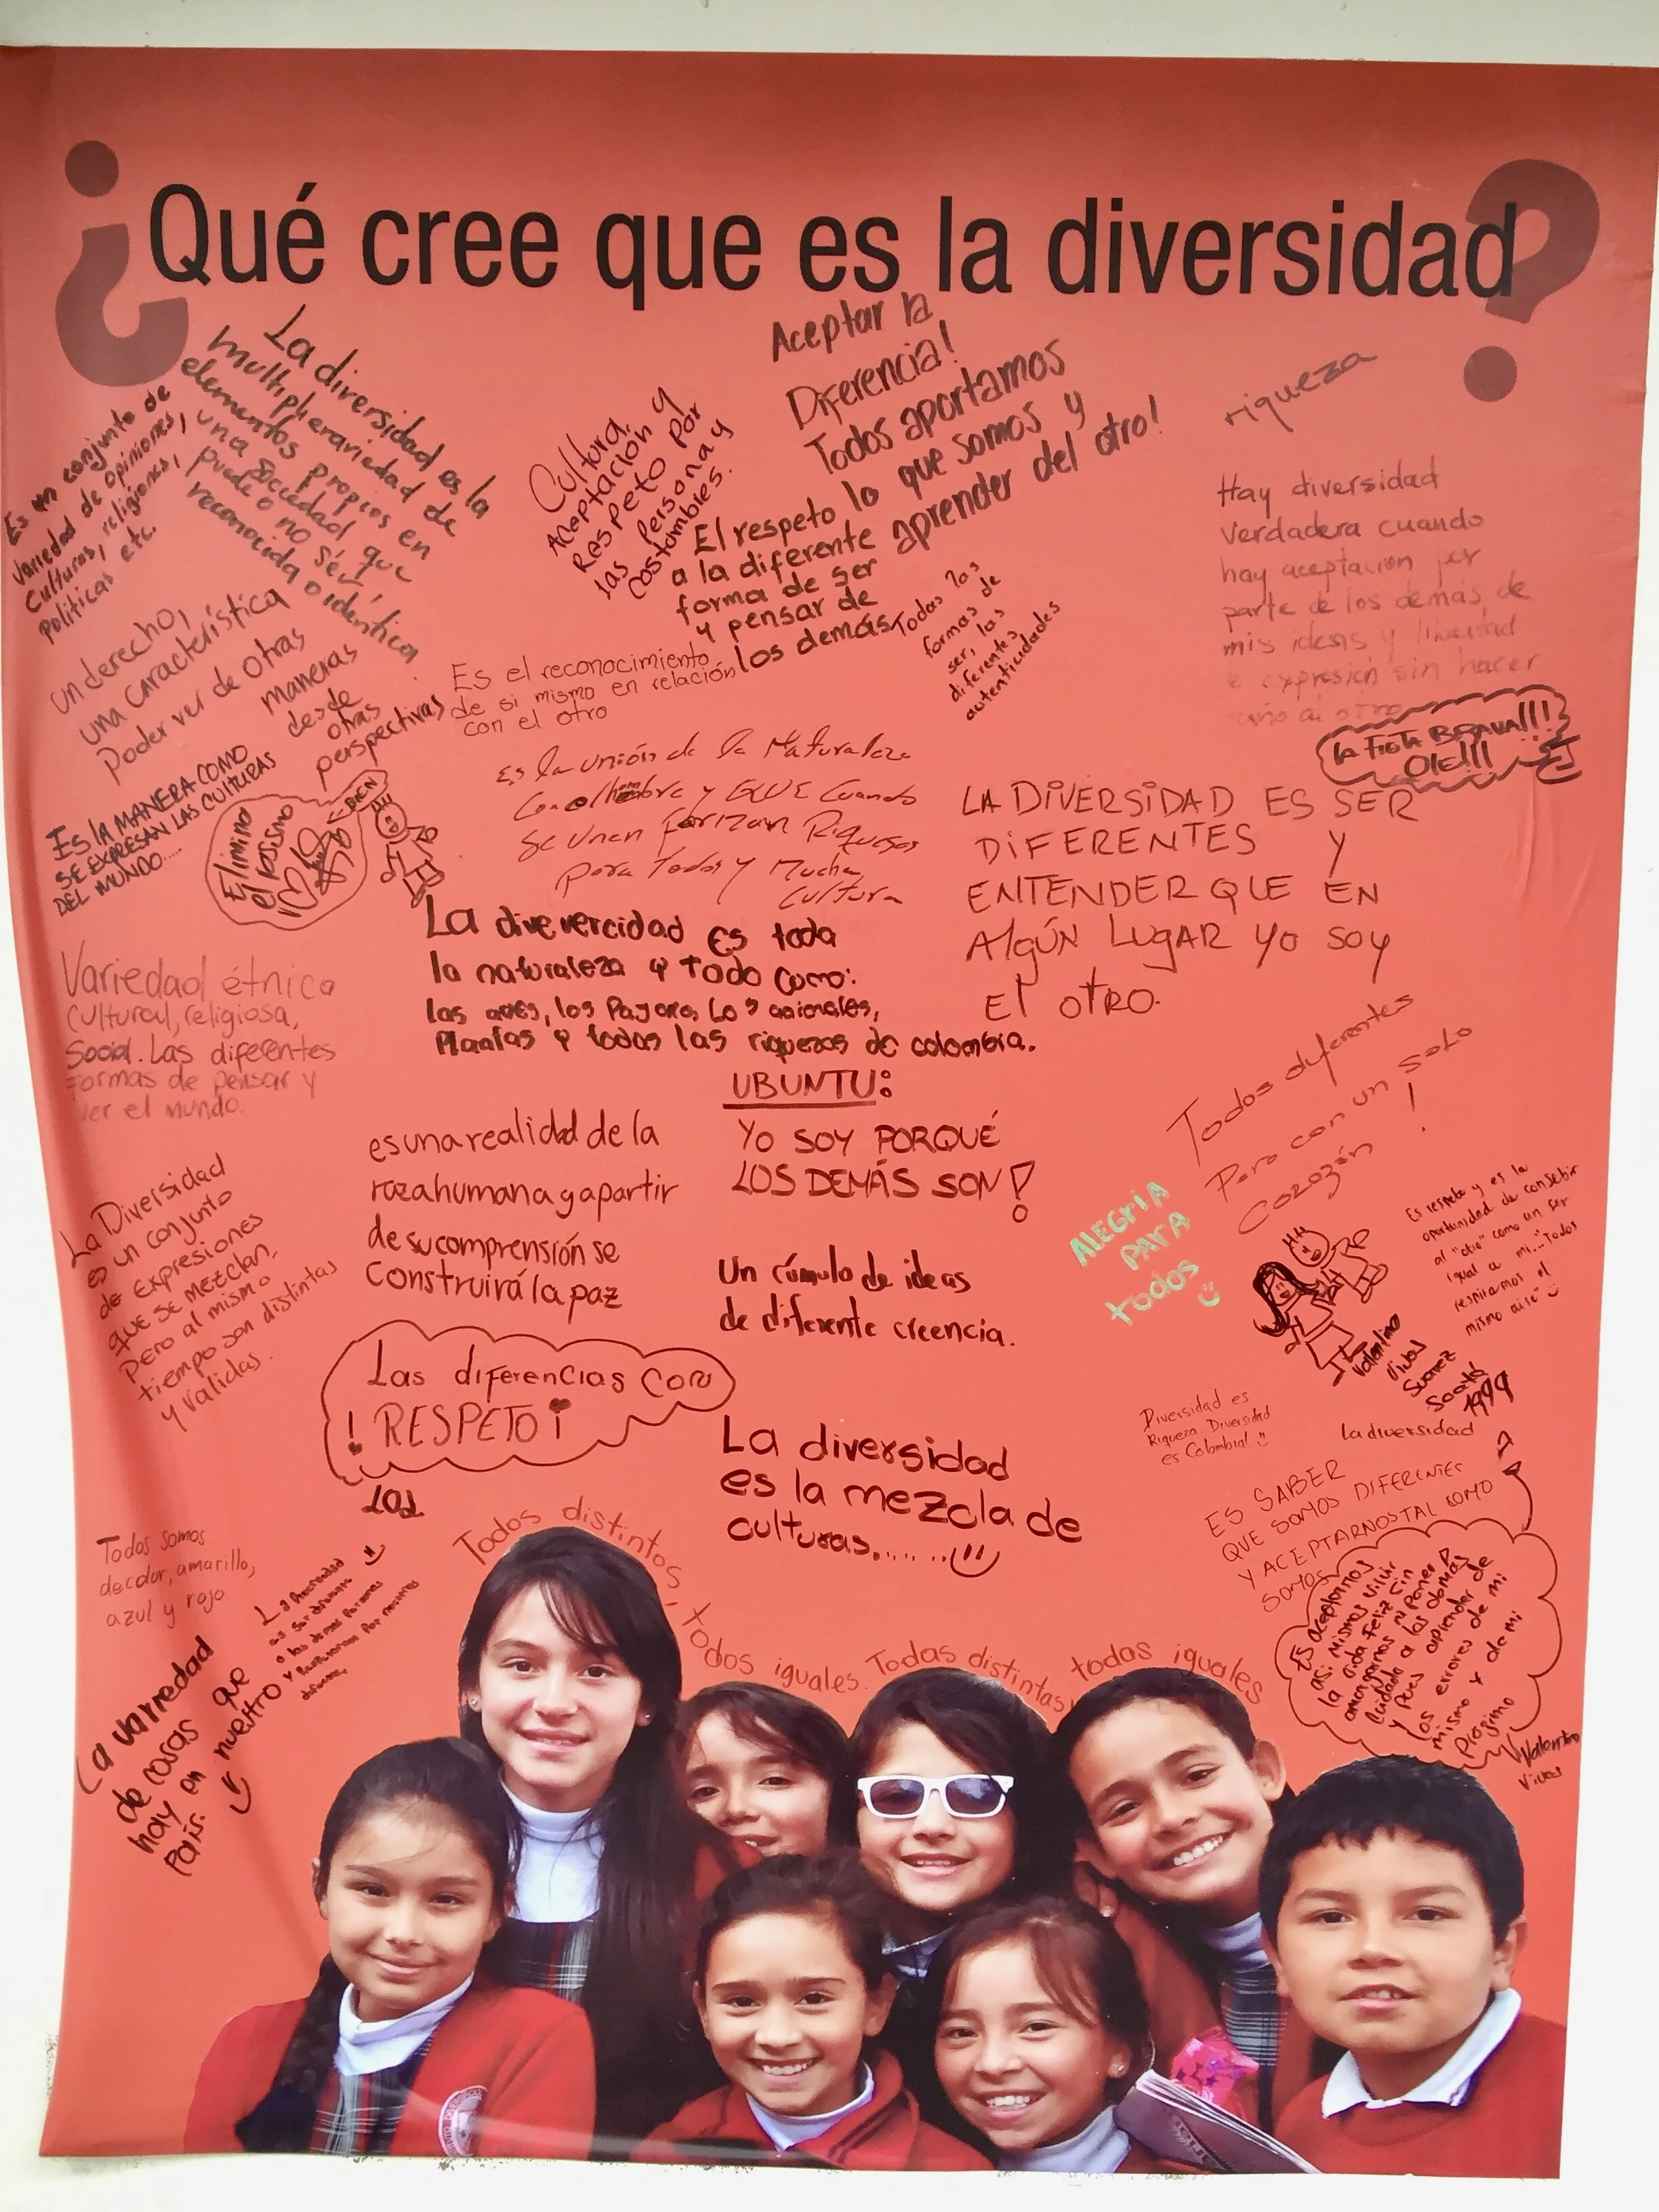 ¿Qué cree que es la diversidad?
La diversidad es la
multipleraviedad de
elementos propios en
una sociedad que
puede o no sér,
reconocida o idéntica
Es un conjunto de
variedad de opiniones,
culturas, religiones,
politicas etc.
Cultura,
aceptación y
Respeto por
las persona y
costumbres.
Aceptar la
Diferencia!
Todos aportamos
lo que somos y
aprender del otro!
El respeto
a la diferente
forma de ser
y pensar de
los demás
riqueza
Hay diversidad
verdadera cuando
hay aceptacion por
parte de los demás, de
mis ideas y libertad
e expresión sin hacer
al otro
un derecho,
una característica
Poder ver de otras
maneras
desde
otras
perspectivas
Es el reconocimiento
de si mismo en relación
con el otro
Todas las
formas de
ser, las
diferentes
autenticidades
La Fiesta BRAVA!!!
OLE!!!
Es LA MANERA COMO
SE EXPRESAN LAS CULTURAS
DEL MUNDO.....
Elimino
el
BIEN
Es la unión de la Naturaleza
con el hombre y QUE Cuando
Se Unen forman Riquesas
para Todos y Mucha
Cultura
LA DiVERSiDAD ES SER
DiFERENTES Y
ENTENDER QUE EN
AlGÚN LUGAR YO SOY
El OTRO.
La divevercidad es toda
la naturaleza y Todo como:
las aves, los Pajaros, Los animales,
Plantas y todas las riquezas de colombia.
Variedad étnica
cultural, religiosa,
Social. Las diferentes
formas de pensar y
ver el mundo.
UBUNTU:
YO SOY PORQUÉ
LOS DEMÁS SON!
es una realidad de la
raza humana y a partir
de su comprensión se
construirá la paz
Todos diferentes
Pero con un solo
corazón!
ALEGRIA
PARA
todos
Es respeto y es la
oportunidad de consebir
al "otro" como un ser
igual a mi..."Todos
respiramos el
mismo aire"
La Diversidad
es un conjunto
de expresiones
que se mezclan,
Pero al mismo
tiempo son distintas
y validas.
Un cúmulo de ideas
de diferente creencia.
Valentino
Vivas
Suarez
1999
Las diferencias con
! RESPETO¡
Diversidad es
Riqueza Diversidad
es Colombia!
La diversidad
La diversidad
es la mezcla de
culturas........
ES SABER
QUE SOMOS DIFERENTES
Y ACEPTARNOS TAL COMO
SOMOS
Es aceptarnos
asi mismos vivir
la vida feliz sin
amargarnos ni poner
cuidado a los demas
y Pues aprender de
los errores de mi
mismo y de mi
Progimo
Valentino
Vivas
Todos somos
de color, amarillo,
azul y rojo
La variedad
de cosas que
hay en nuestro
País.
Todos distintos, todos iguales. Todas distintas, todas iguales